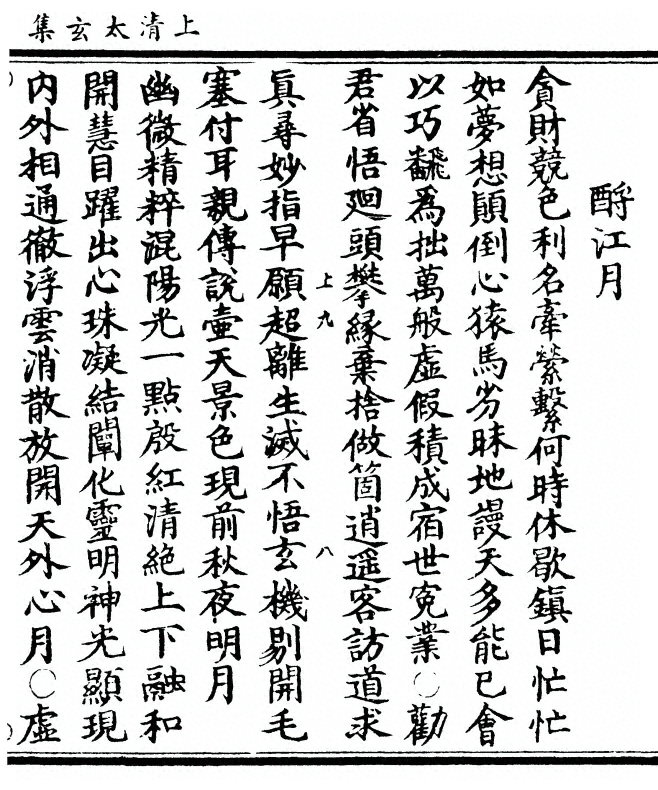 上清太玄集
酹江月
貪財競色利名牽縈繫何時休歇鎮日忙忙
如夢想顛倒心猿馬劣昧地謾天多能已會
以巧飜為拙萬般虛假積成宿世寃業○勸
君省悟廻頭攀緣棄捨做箇逍遥客訪道求
上九 八
真尋妙指早願超離生滅不悟玄機剔開毛
塞付耳親傳說壷天景色現前秋夜明月
幽微精粹混陽光一點殷紅清絶上下融和
開慧目躍出心珠凝結闡化靈明神光顯現
内外相通徹浮雲消散放開天外心月○虛